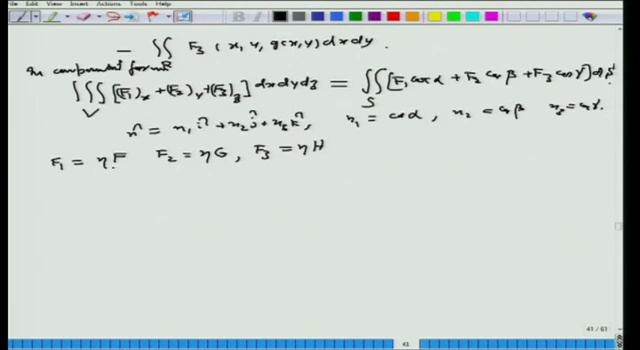 File Edit View Insert Actions Tools Help
B
- ∬_R F₃ (x, y, g(x,y)) dx dy.
In component form
∭_V [(F₁)_x + (F₂)_y + (F₃)_z] dx dy dz = ∬_S [F₁ cos α + F₂ cos β + F₃ cos γ] ds
n̂ = n₁ î + n₂ ĵ + n₃ k̂, n₁ = cos α, n₂ = cos β n₃ = cos γ.
F₁ = ηF F₂ = ηG, F₃ = ηH
41 / 61
41